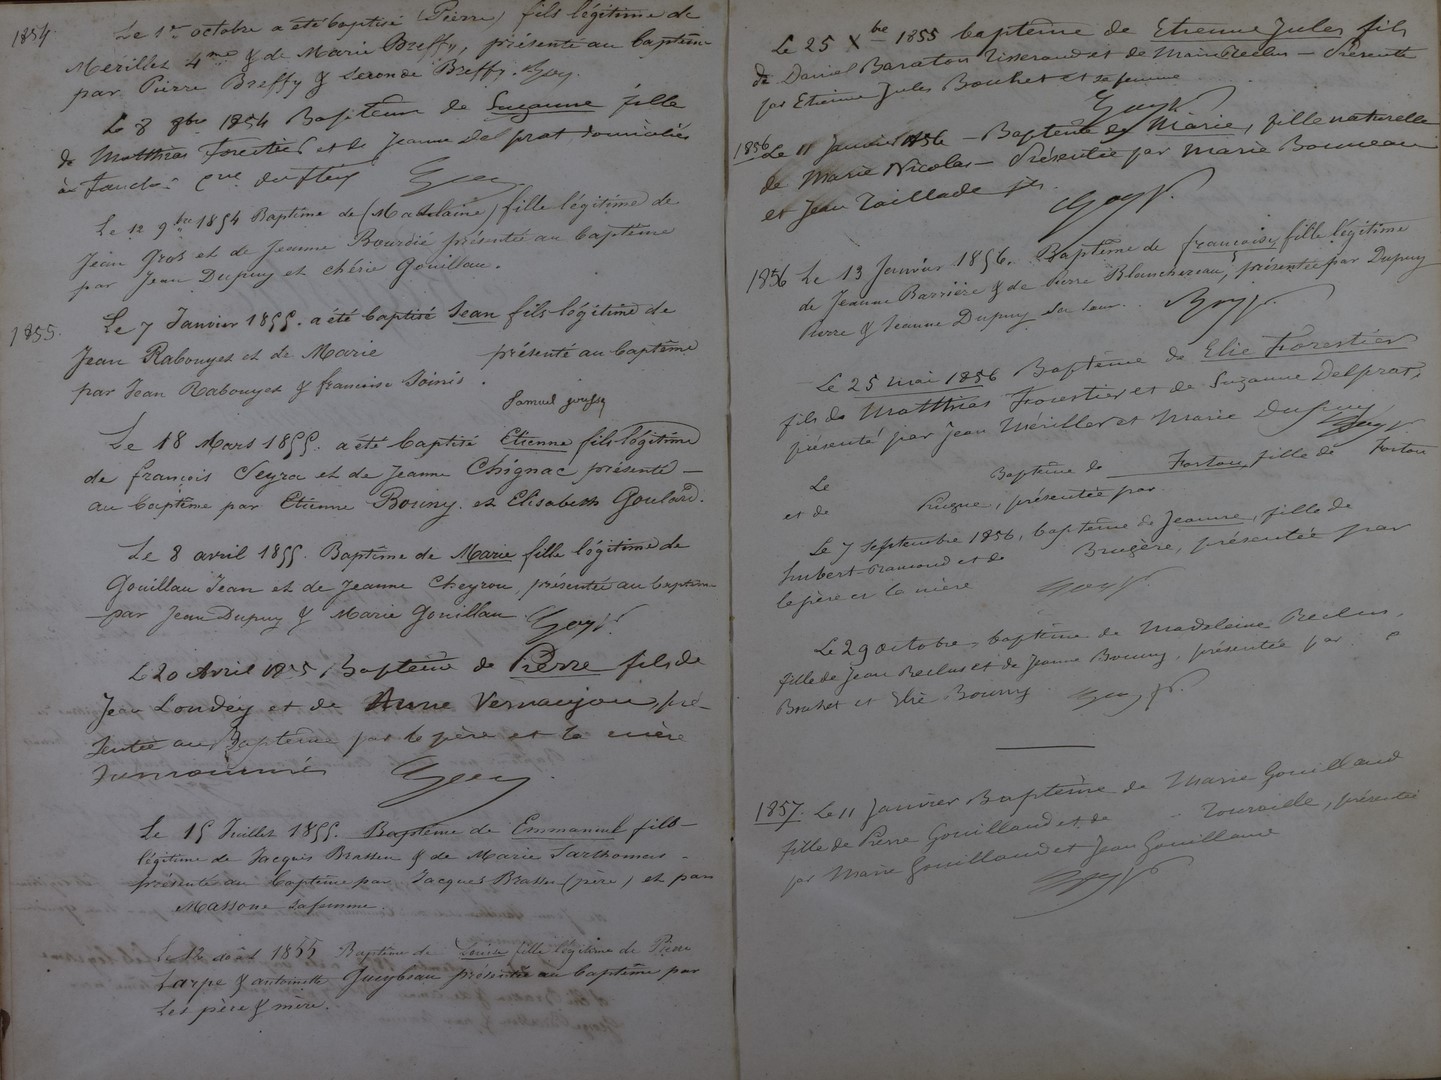 1854 Le 1er octobre a été baptisé (Pierre) fils légitime de
Mérilles 4me & de Marie Breffy, présenté au baptême
par Pierre Breffy & Breffy. Goy.
Le 8 8bre 1854 Baptême de Suzanne fille
de Matthias Forestier et de Jeanne Delprat domiciliés
à cne du fleix
Le 12 9bre 1854 Baptême de (Madelaine) fille légitime de
Jean Gros et de Jeanne Bourdié présentée au baptême
par Jean Dupuy et chérie Gouillau.
1855. Le 7 Janvier 1855. a été baptisé Jean fils légitime de
Jean Rabouyet et de Marie présenté au baptême
par Jean Rabouyet & françoise Soinis.
Samuel
Le 18 Mars 1855. a été baptisé Etienne fils légitime
de françois Seyra et de Jeanne Chignac présenté —
au baptême par Etienne Bouny. et Elisabeth Goulard.
Le 8 avril 1855. Baptême de Marie fille légitime de
Gouillau Jean et de Jeanne Cheyrou, présentée au baptême
par Jean Dupuy & Marie Gouillau Goy
Le 20 Avril 1855, Baptême de Pierre fils de
Jean Loudey et de Anne Vernaujou, pré-
sentée au Baptême par le père et la mère
Goy
Le 15 Juillet 1855. Baptême de Emmanuel fils —
légitime de Jacques Brassem & de Marie Sarthomas —
présenté au baptême par Jacques Brasse (père) et par
Massone sa femme.
Le 12 août 1855 Baptême de Louise fille légitime de Pierre
Large & antoinette Queybeau présentée au baptême par
Les père & mère.
Le 25 Xbre 1855 baptême de Etienne Jules fils
de Daniel Baraton Tisserand et de Marie Reclus — Présenté
par Etienne Jules Bouhet et sa femme
Goy
1856 Le 11 Janvier 1856 — Baptême de Marie, fille naturelle
de Marie Nicolas — Présentée par Marie Bonneau
et Jean Taillade
Goy
1856 Le 13 Janvier 1856. Baptême de françoise, fille légitime
de Jeanne Barrière & de Pierre Blanchereau, présentée par Dupuy
Pierre & Jeanne Dupuy sa soeur. Goy
Le 25 mai 1856 Baptême de Elie Forestier
fils de Matthias Forestier et de Suzanne Delprat,
présenté par Jean Mériller et Marie Dupuy
Goy
Le Baptême de Forton, fille de Forton
et de Pingue, présentée par
Le 7 Septembre 1856, baptême de Jeanne, fille de
hubert et de Brugère, présentée par
le père et la mère Goy
Le 29 octobre, baptême de Madeleine Reclus,
fille de Jean Reclus et de Jeanne Bouny, présentée par
Bouhet et Elie Bouny Goy
1857. Le 11 Janvier Baptême de Marie Gouilland
fille de Pierre Gouilland et de Touraille, présentée
par Marie Gouilland et Jean Gouilland
Goy